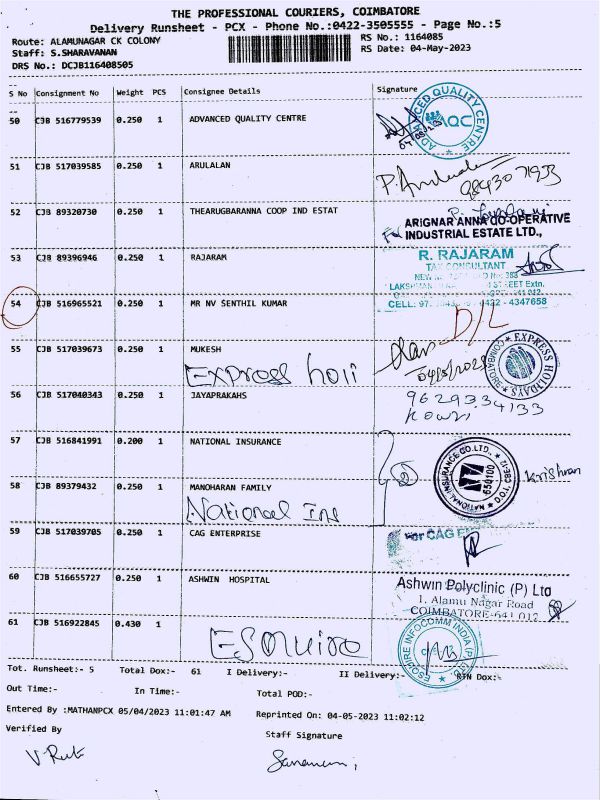 THE PROFESSIONAL COURIERS, COIMBATORE
Delivery Runsheet - PCX - Phone No.:0422-3505555 - Page No.:5
Route: ALAMUNAGAR CK COLONY
RS No.: 1164085
Staff: S.SHARAVANAN
RS Date: 04-May-2023
DRS No.: DCJB116408505
S No Consignment No Weight PCS Consignee Details Signature
50 CJB 516779539 0.250 1 ADVANCED QUALITY CENTRE
ADVANCED QUALITY CENTRE
AQC
51 CJB 517039585 0.250 1 ARULALAN
9843071933
52 CJB 89320730 0.250 1 THEARUGBARANNA COOP IND ESTAT
ARIGNAR ANNA CO-OPERATIVE
INDUSTRIAL ESTATE LTD.,
53 CJB 89396946 0.250 1 RAJARAM
R. RAJARAM
TAX CONSULTANT
54 CJB 516965521 0.250 1 MR NV SENTHIL KUMAR
CELL: 0422 - 4347658
D/L
55 CJB 517039673 0.250 1 MUKESH
Express holi
EXPRESS HOLIDAYS
COIMBATORE
56 CJB 517040343 0.250 1 JAYAPRAKAHS
9629334133
57 CJB 516841991 0.200 1 NATIONAL INSURANCE
NATIONAL INSURANCE CO.LTD.,
650100
Krishnan
58 CJB 89379432 0.250 1 MANOHARAN FAMILY
National Ins
59 CJB 517039705 0.250 1 CAG ENTERPRISE
For CAG
60 CJB 516655727 0.250 1 ASHWIN HOSPITAL
Ashwin Polyclinic (P) Ltd
1. Alamu Nagar Road
COIMBATORE-641 012
61 CJB 516922845 0.430 1
Esquire
ESQUIRE INFOCOMM INDIA (P) LTD
Tot. Runsheet:- 5 Total Dox:- 61 I Delivery:- II Delivery:- RTN Dox:-
Out Time:- In Time:- Total POD:-
Entered By :MATHANPCX 05/04/2023 11:01:47 AM Reprinted On: 04-05-2023 11:02:12
Verified By
Staff Signature